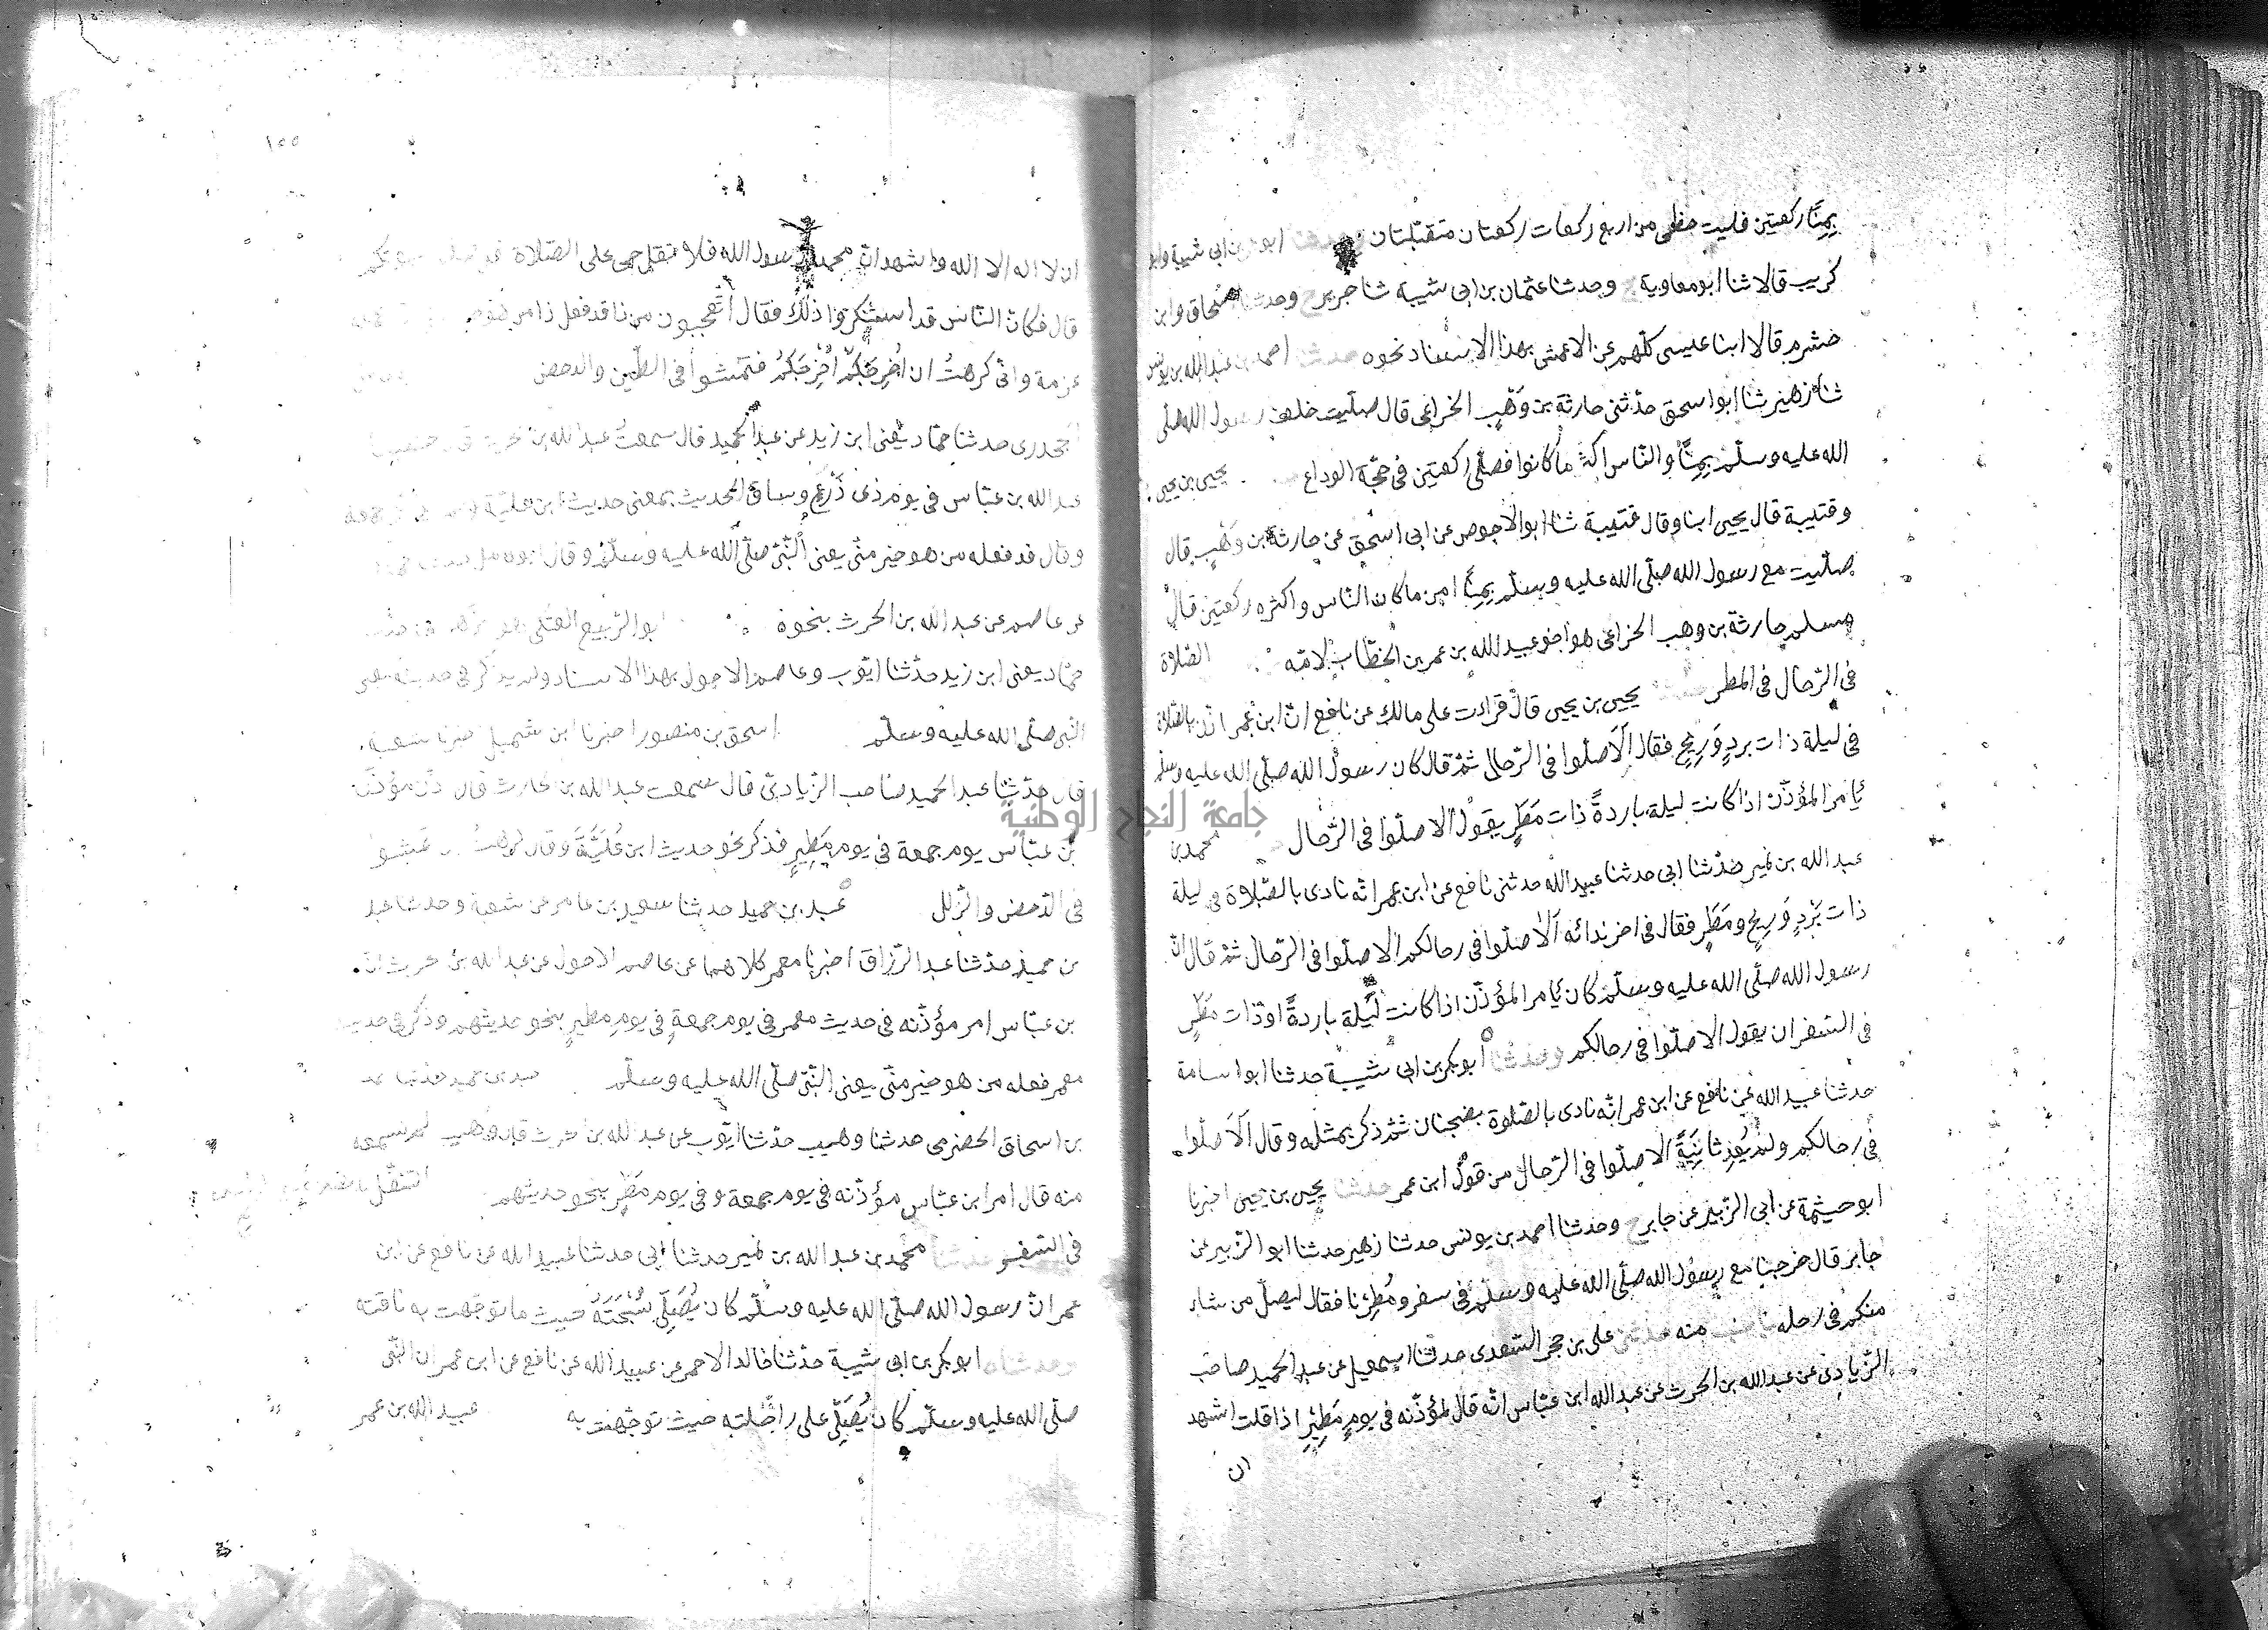 بِمِنًا ركعتين فليت حظى من اربع ركعات ركعتان متقبّلتان ابو بن ابى شيبة وابو
كريب قالا ثنا ابو معاوية ح وحدثنا عثمان بن ابى شيبة ثنا جرير ح وحدثنا اسحاق وابن
خشرم قالا ابنا عيسى كلّهم عن الاعمش بهذا الاسناد نحوه حدثنا احمد بن عبد الله بن يونس
ثنا زهير ثنا ابو اسحق حدّثنى حارثة بن وَهْبٍ الخزاعى قال صلّيت خلف رسول الله صلّى
الله عليه وسلّم بِمِنًا والنّاس اكثر ما كانوا فصلّى ركعتين فى حجّة الوداع يحيى بن يحيى
وقتيبة قال يحيى ابنا وقال قتيبة ثنا ابو الاحوص عن ابى اسحق عن حارثة بن وَهْبٍ قال
صلّيت مع رسول الله صلّى الله عليه وسلّم بِمِنًا امن ما كان النّاس واكثره ركعتين قال
مسلم حارثة بن وهب الخزاعى هو اخو عبيد الله بن عمر بن الخطّاب لامّه الصّلاة
فى الرّحال فى المطر يحيى بن يحيى قال قرات على مالك عن نافع انّ ابن عمر اذّن بالصّلاة
فى ليلة ذات بردٍ وَرِيحٍ فقال اَلَا صلّوا فى الرّحال ثمّ قال كان رسول الله صلّى الله عليه وسلم
يأمر المؤذّن اذا كانت ليلة باردةً ذات مَطَرٍ يقول الا صلّوا فى الرّحال محمد بن
عبد الله بن نمير حدّثنا ابى حدثنا عبيد الله حدثنى نافع عن ابن عمر انّه نادى بالصّلاة فى ليلة
ذات بَرْدٍ وَرِيحٍ ومَطَرٍ فقال فى اخر ندائه اَلَا صلّوا فى رحالكم الا صلّوا فى الرّحال ثمّ قال انّ
رسول الله صلّى الله عليه وسلّم كان يأمر المؤذّن اذا كانت ليلة باردةً او ذات مَطَرٍ
فى السّفر ان يقول الا صلّوا فى رحالكم وحدثنا ابو بكر بن ابى شيبة حدثنا ابو اسامة
حدثنا عبيد الله عن نافع عن ابن عمر انّه نادى بالصّلوة بضجنان ثمّ ذكر بمثله وقال اَلَا صلّوا
فى رحالكم ولم يُعِدْ ثانِيَةً الا صلّوا فى الرّحال من قول ابن عمر حدثنا يحيى بن يحيى اخبرنا
ابو خيثمة عن ابى الزّبير عن جابر ح وحدثنا احمد بن يونس حدثنا زهير حدثنا ابو الزّبير عن
جابر قال خرجنا مع رسول الله صلّى الله عليه وسلّم فى سفر ومُطِرْنا فقال ليصلّ من شاء
منكم فى رحله منه حدثنى على بن حجر السّعدى حدثنا اسمعيل عن عبد الحميد صاحب
الزّيادى عن عبد الله بن الحرث عن عبد الله ابن عبّاس انّه قال لمؤذّنه فى يومٍ مَطِيْرٍ اذا قلت اشهد
ان
١٥٥
ان لا اله الا الله واشهد انّ محمدا رسول الله فلا تقل حى على الصّلاة
قال فكانّ النّاس قد استنكروا ذلك فقال أتعجبون من ذا قد فعل ذا من هو
عزمة وانّى كرهتُ ان اُخرِجَكمْ فتمشوا فى الطّين والدحض
الجحدرى حدثنا حمّاد يعنى ابن زيد عن عبد الحميد قال سمعت عبد الله بن
عبد الله بن عبّاس فى يوم ذى رَزَغٍ وساق الحديث بمعنى حديث ابن عليّة
وقال قد فعله من هو خير منّى يعنى النّبىّ صلّى الله عليه وسلّم وقال ابو كامل
عن عاصم عن عبد الله بن الحرث بنحوه ابو الرّبيع العتكى هو الزّهرانى
حمّاد يعنى ابن زيد حدّثنا ايّوب وعاصم الاحول بهذا الاسناد ولم يذكر فى حديثه يعنى
النّبى صلّى الله عليه وسلّم اسحق بن منصور اخبرنا ابن شميل اخبرنا شعبة
قال حدّثنا عبد الحميد صاحب الزّيادىّ قال سمعت عبد الله بن حارث قال اذّن مؤذّن
بن عبّاس يوم جمعة فى يومٍ مَطِيرٍ فذكر نحو حديث ابن عُلَيَّةَ وقال كرهت تمشوا
فى الدّحض والزّلل عبد بن حميد حدثنا سعيد بن عامر عن شعبة وحدثنا عبد
بن حميد حدّثنا عبد الرّزاق اخبرنا معمر كلاهما عن عاصم الاحول عن عبد الله بن حرث انّ
بن عبّاس امر مؤذّنه فى حديث معمر فى يوم جمعةٍ فى يومٍ مطيرٍ بنحو حديثهم وذكر فى حديث
معمر فعله من هو خير منّى يعنى النّبّى صلّى الله عليه وسلّم عبد بن حميد حدّثنا احمد
بن اسحاق الحضرمى حدثنا وهيب حدّثنا ايّوب عن عبد الله بن حرث قال وهيب لم يسمعه
منه قال امر ابن عبّاس مؤذّنه فى يوم جمعة وفى يوم مَطَرٍ بنحو حديثهم التنفّل
فى السّفر حدثنا محمد بن عبد الله بن نمير حدثنا ابى حدثنا عبيد الله عن نافع عن ابن
عمر انّ رسول الله صلّى الله عليه وسلّم كان يُصَلِّى سُبْحَتَهُ حيث ما توجّهت به ناقته
وحدثناه ابو بكر بن ابى شيبة حدّثنا خالد الاحمر عن عبيد الله عن نافع عن ابن عمر ان النّبى
صلّى الله عليه وسلّم كان يُصَلِّى على راحلته حيث توجّهت به عبيد الله بن عمر
جامعة النجاح الوطنية